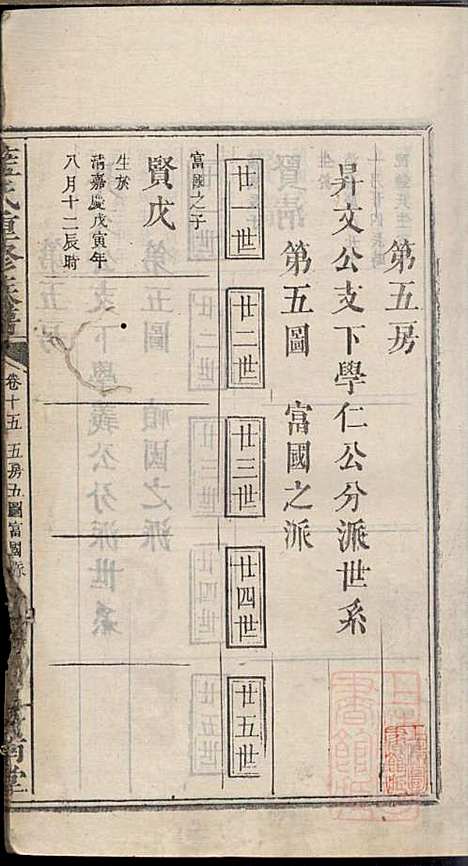 第五房
昇文公支下學仁公分派世系
第五圖　富國之派
廿一世
廿二世
廿三世
廿四世
廿五世
富　之子
賢戊
生於
清嘉慶戊寅年
八月十二辰時
氏重修族譜
卷十五　五房五圖富國派